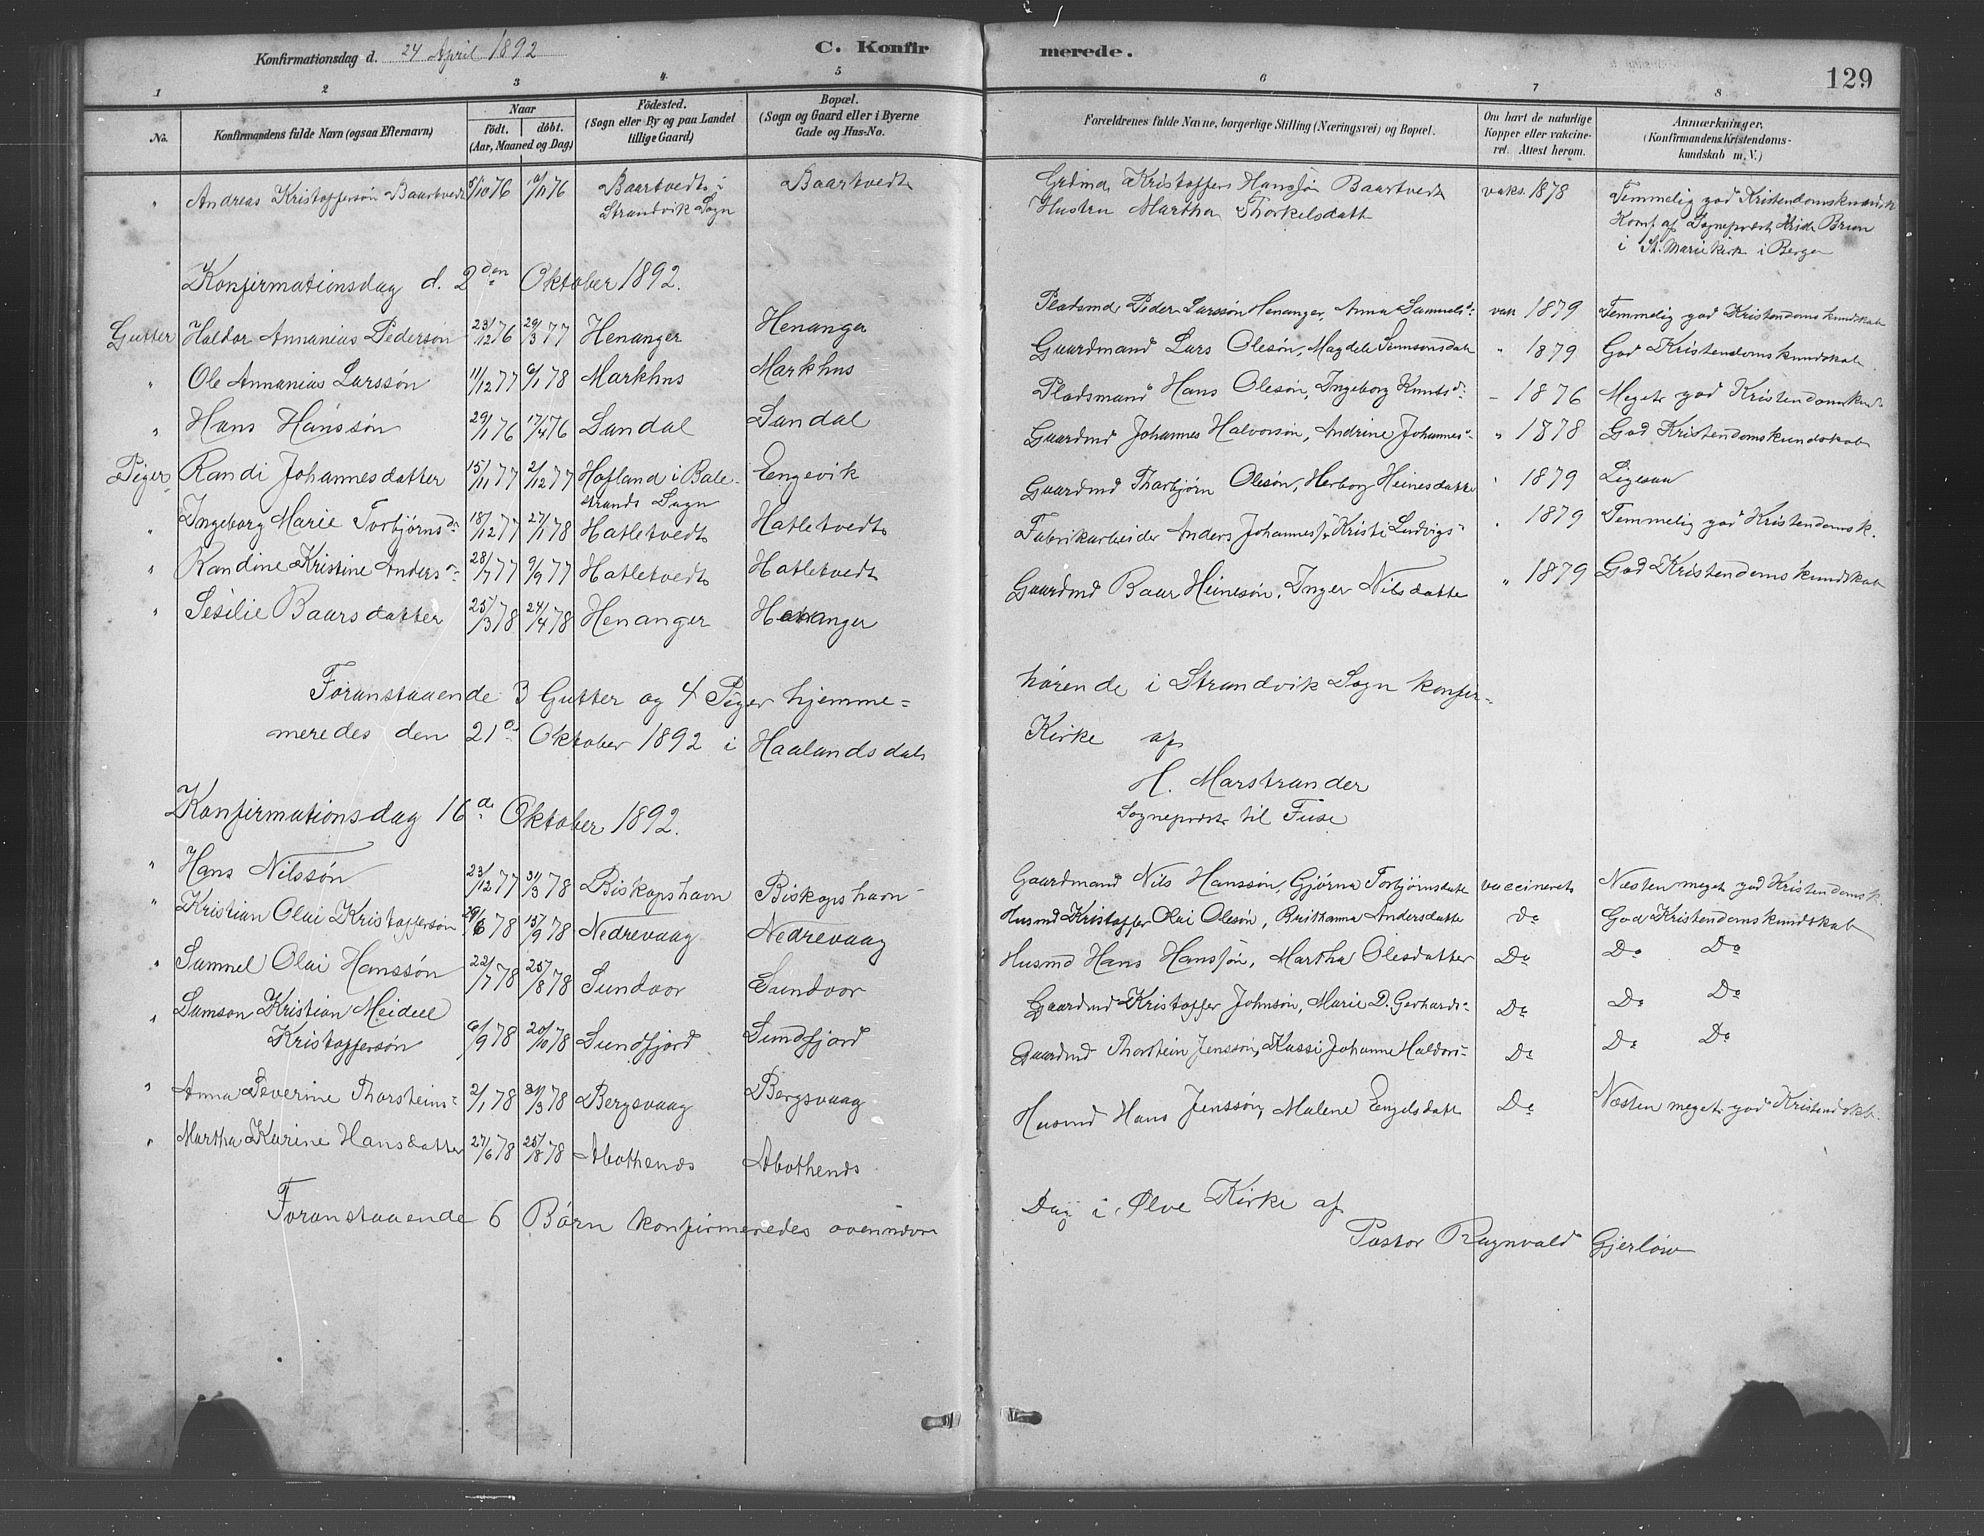 Konfirmationsdag d. 24 April 1892
C. Konfirmerede.
129
1 2 3 4 5 6 7 8
No.
Konfirmandens fulde Navn (ogsaa Efternavn)
Naar født. døbt. (Aar, Maaned og Dag)
Fødested. (Sogn eller By og paa Landet tillige Gaard)
Bopæl. (Sogn og Gaard eller i Byerne Gade og Hus-No.
Forældrenes fulde Navne, borgerlige Stilling (Næringsvei) og Bopæl.
Om havt de naturlige Kopper eller vaccineret. Attest herom.
Anmærkninger. (Konfirmandens Kristendomskundskab m. V.)
" Andreas Kristoffersøn Baartvedt 76 76 Baartvedt i Strandvik Sogn Baartvedt Grdmd Kristoffers Hansson Baartvedt Hustru Martha Thorkelsdatt vaks. 1878 Temmelig god Kristendomskundsk Konf. af Sognepræst Krid. Brun i St. Marie kirk i Bergen
Konfirmationsdag d. 2den Oktober 1892.
Gutter Haldor Annanias Pedersøn 23/12 76 29/3 77 Henanger Henanger Pladsmd Peder Larssøn Henanger, Anna Samuelsd: vak 1879 Temmelig god Kristendomskundskab
" Ole Annanias Larssøn 11/12 77 6/1 78 Markhus Markhus Gaardmand Lars Olesøn, Magdela Simonsdatt " 1879 God Kristendomskundskab
" Hans Hanssøn 29/1 76 17/4 76 Sandal Sandal Pladsmand Hans Olesøn, Ingeborg Knutsd: - 1876 Meget god Kristendomskund
Piger Randi Johannesdatter 15/11 77 2/12 77 Hafland i Balestrands Sogn Eengevik Gaardmd Johannes Halvorsøn, Andrine Johannes- " 1878 God Kristendomskundskab
" Ingeborg Marie Torbjørnsdr 18/12 77 27/1 78 Hatletvedt Hatletvedt Gaardmd Thorbjørn Olesøn, Herborg Heinesdatter " 1879 Ligesaa
" Randine Kristine Anders- 28/7 77 9/9 77 Hatletvedt Hatletvedt Fabrikarbeider Anders Johanness, Kristi Ludvigs- " 1879 Temmelig god Kristendomsk.
" Sesilie Baarsdatter 25/3 78 24/4 78 Henanger Henanger Gaardmd Baar Heinesøn, Inger Nilsdatte " 1879 God Kristendomskundskab
Foranstaaende 3 Gutter og 4 Piger hjemme= hørende i Strandvik Sogn konfir-
meredes den 21de Oktober 1892 i Haalandsdal Kirke af
H. Marstrander
Sognepræst til Fuse
Konfirmationsdag 16de Oktober 1892.
" Hans Nilssøn 23/12 77 31/3 78 Biskopshavn Biskopshavn Gaardmand Nils Hanssøn, Gjørna Torbjørnsdatt vaccineret Næsten meget god Kristendomsk.
" Kristian Olai Kristoffersøn 29/6 78 15/9 78 Nedrevaag Nedrevaag Husmd Kristoffer Olai Olesøn, Brithanna Andersdatte Do God Kristendomskundskab
" Samuel Olai Hanssøn 22/7 78 25/8 78 Sundvor Sundvor Husmd Hans Hanssøn, Martha Olesdatter Do Do Do
" Samson Kristian Meidell Kristoffersøn 6/9 78 20/10 78 Sundfjord Sundfjord Gaardmd Kristoffer Johnsøn, Marie D. Gerhards- Do Do Do
" Anna Severine Thorsteins- 2/1 78 31/3 78 Bergsvaag Bergsvaag Gaardmd Thorstein Jenssøn, Kassi Johanne Haldors- Do Do Do
" Martha Karine Hansdatter 27/6 78 25/8 78 Abothends Abothends Husmd Hans Jenssøn, Malene Engelsdatt Do Næsten meget god Kristendskb.
Foranstaaende 6 Børn konfirmeredes ovennævn Dag i Ølve Kirke af
Pastor Ragnvald Gjerløw